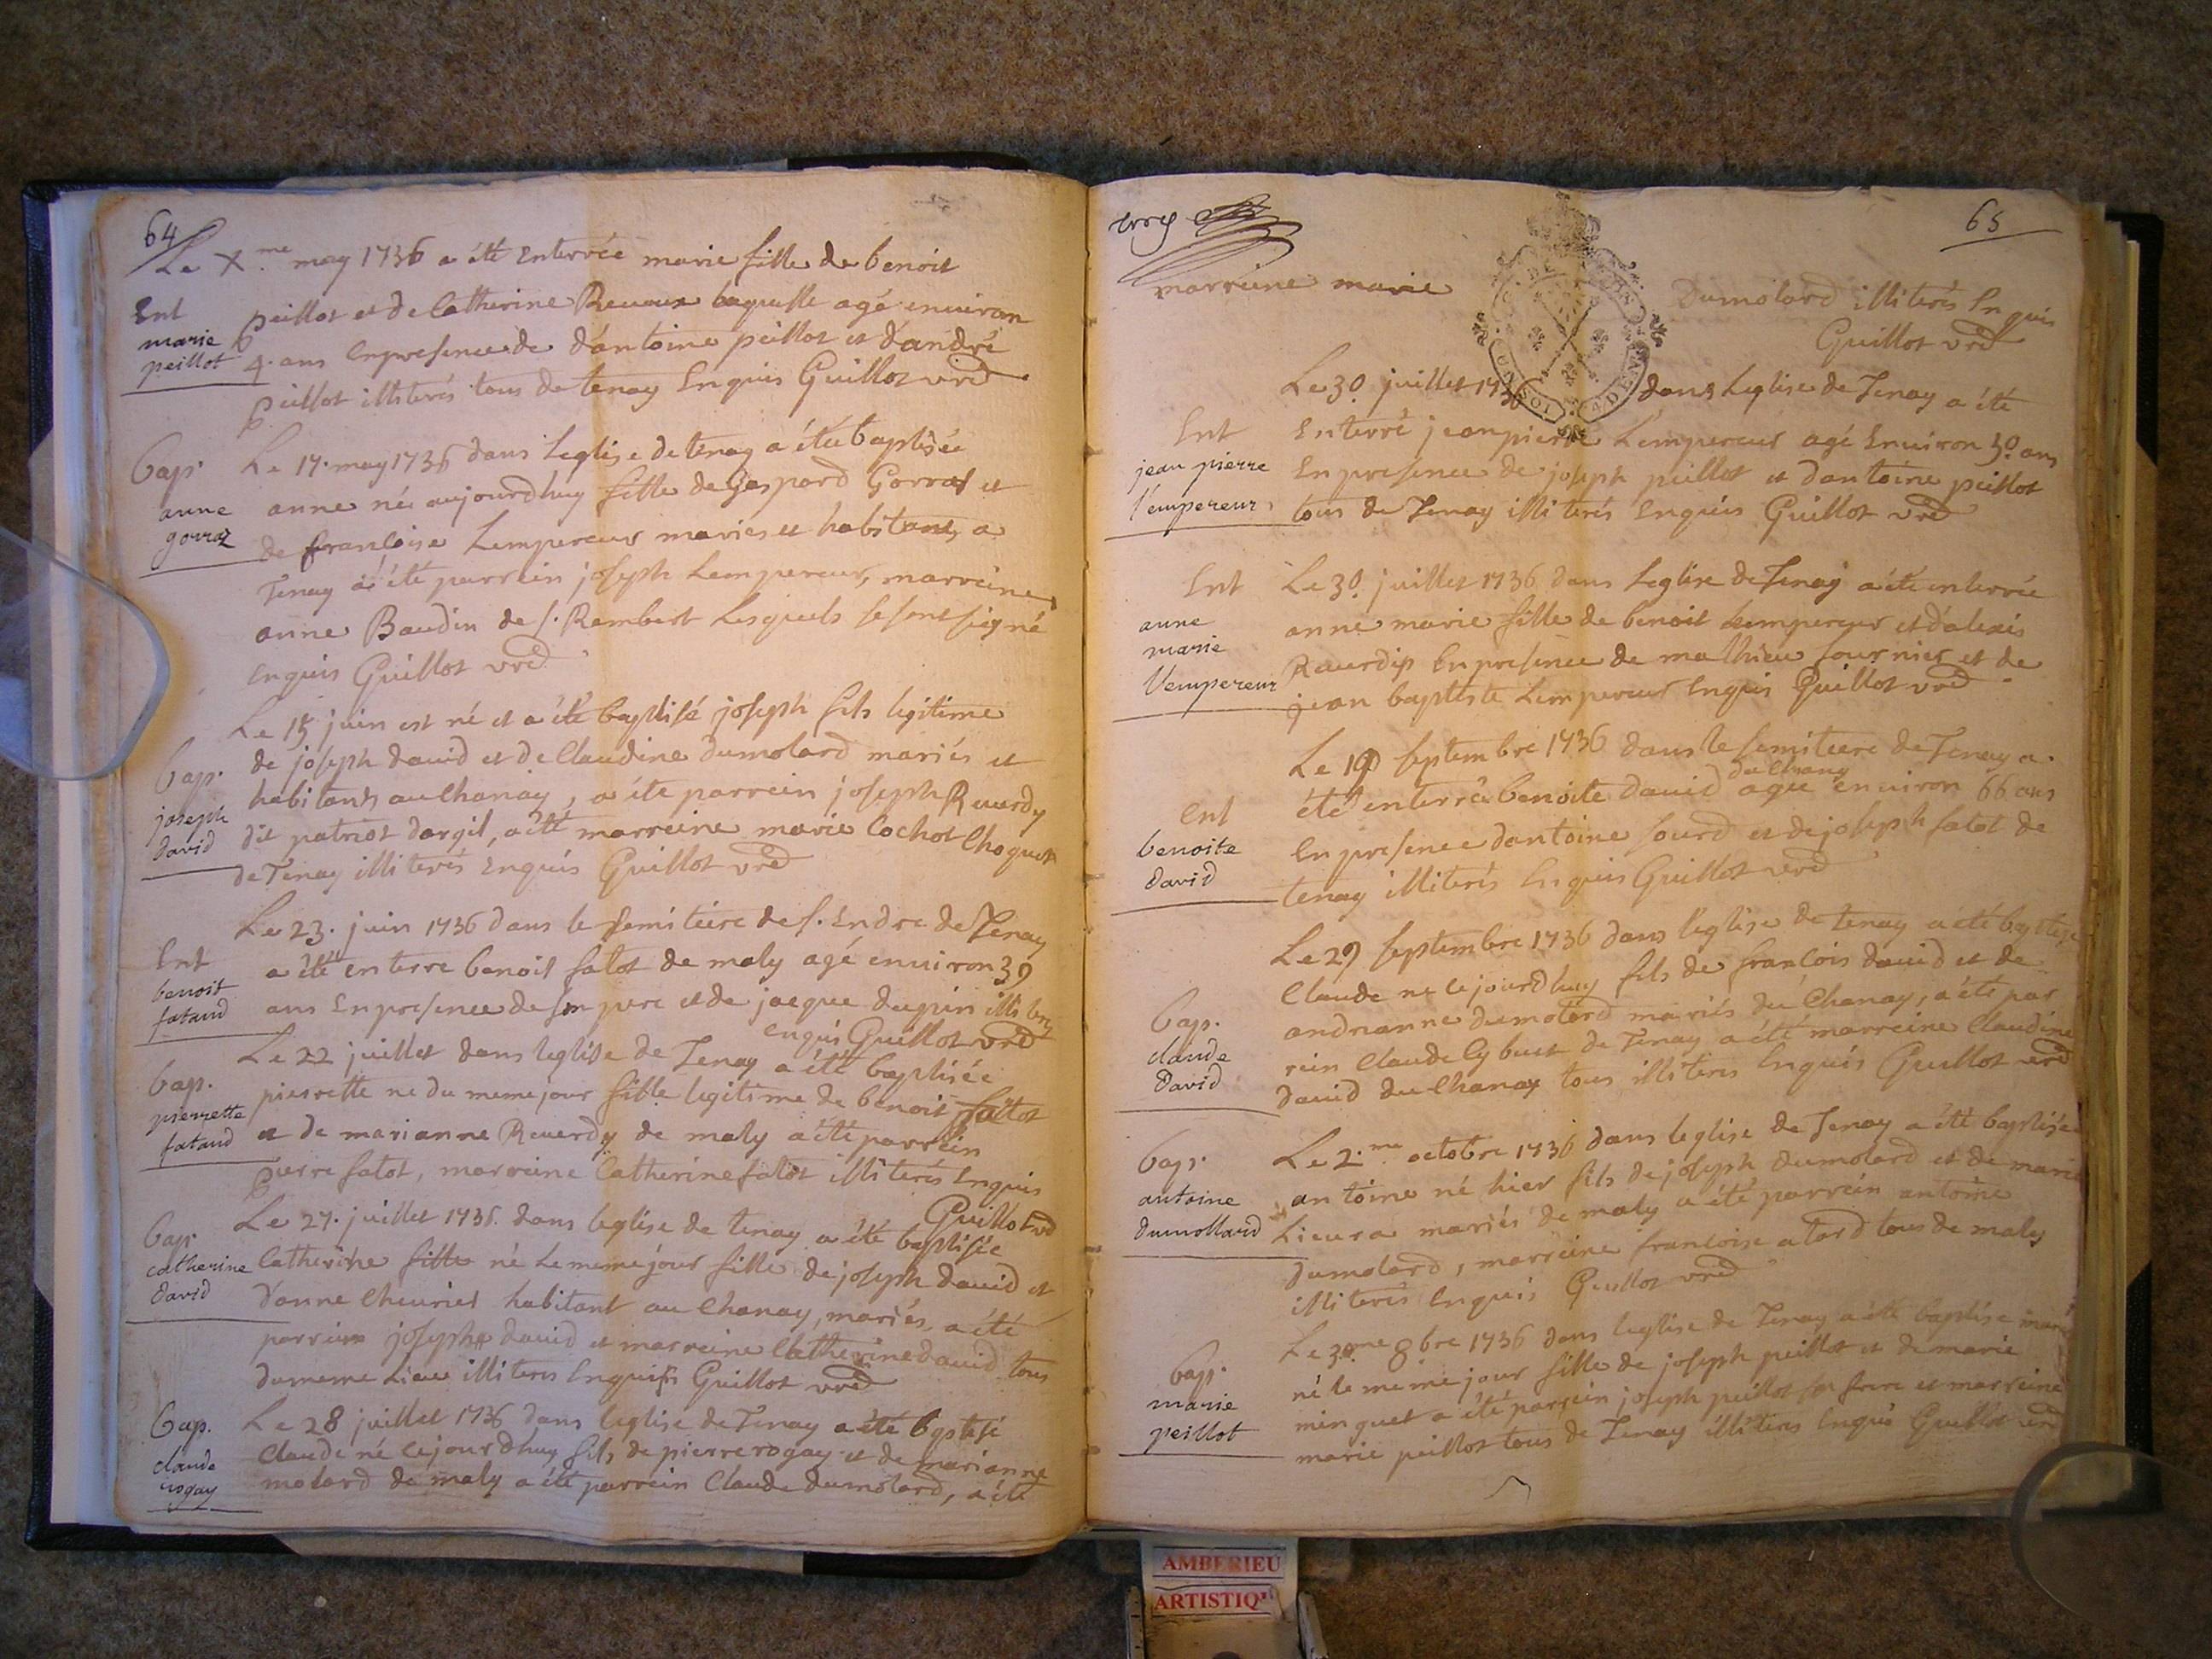 64
Le X.me may 1736 a été Enterrée marie fille de benoit
Ent
marie
peillot
peillot et de Catherine Reuaux laquelle agé enuiron
4. ans Enpresence de d'antoine peillot et d'andré
peillot illiterés tous de tenay Enquis Guillot vre
bap.
anne
gorraz
Le 17. may 1736 dans Leglise de tenay a étée baptisée
anne née aujourdhuy fille de Gaspard Gorraz et
de francoise Lempereur mariés et habitans a
Tenay a été parrein joseph Lempereur, marreine
anne Baudin de s. Rembert Lesquels se sont signé
enquis Guillot vre
Le 15 juin est né et a été baptisé joseph fils legitime
bap.
joseph
david
de joseph dauid et de Claudine dumolard mariés et
habitants au Chanay, a été parrein joseph Reuerdy
dit patriot dargil, a été marreine marie Cochot Choquet
de Tenay illiterés Enquis Guillot vre
Le 23. juin 1736 dans le semitiere de s. Endre de Tenay
Ent
benoit
fataud
a été enterre benoit fatot de maly agé enuiron 39
ans Enpresence de son pere et de jacque dupin illiteres
enquis Guillot vre
Le 22 juillet dans leglise de Tenay a été baptisée
bap.
pierrette
fataud
pierrette ne du meme jour fille legitime de benoit fattot
et de marianne Reuerdy de maly a été parrein
pierre fatot, marreine Catherine fatot illiterés Enquis
Guillot vre
Le 27. juillet 1736. dans leglise de tenay a été baptisée
bap.
catherine
david
Catherine fille né le meme jour fille de joseph dauid et
d'anne Cheurier habitant au Chanay, mariés a été
parrein joseph dauid et marreine Catherine dauid tous
dumeme Lieu illiteres Enquis Guillot vre
bap.
claude
rogay
Le 28 juillet 1736 dans leglise de Tenay a été baptisé
Claude né cejourdhuy fils de pierre rogay et de marianne
molard de maly a été parrein Claude dumolard, a été
65
marreine marie Dumolard illiterés Enquis
Guillot vre
Le 30. juillet 1736 dans Leglise de Tenay a été
Ent
jean pierre
l'empereur
Enterré jeanpierre Lempereur agé Enuiron 30. ans
En presence de joseph peillot et d'antoine peillot
tous de Tenay illiterés enquis Guillot vre
Ent
anne
marie
l'empereur
Le 30. juillet 1736 dans Leglise de Tenay a été enterrée
anne marie fille de benoit Lempereur et d'alexis
Reuerdis Enpresence de mathieu fournier et de
jean baptiste Lempereur Enquis Guillot vre
Le 19 septembre 1736 dans le semitiere de Tenay a
du Chanay
Ent
benoite
david
été enterré benoite dauid agée enuiron 66 ans
En presence dantoine sourd et de joseph fatot de
tenay illiterés Enquis Guillot vre
Le 29 septembre 1736 dans leglise de tenay a été baptisé
bap.
claude
david
Claude ne cejourdhuy fils de francois dauid et de
andrianne dumolard mariés du Chanay, a été par
rein Claude Cybuet de Tenay a été marreine Claudine
dauid du Chanay tous illiteres Enquis Guillot vre
bap.
antoine
dumollard
Le 2.me octobre 1736 dans leglise de Tenay a été baptisé
antoine né hier fils de joseph dumolard et de marie
Lieura mariés de maly a été parrein antoine
dumolard, marreine francoise alard tous de maly
illiterés Enquis Guillot vre
Le 30.me 8bre 1736 dans leglise de Tenay a été baptisé marie
bap.
marie
peillot
né le meme jour fille de joseph peillot et de marie
minguet a été parrein joseph peillot son frere et marreine
marie peillot tous de Tenay illiteres Enquis Guillot vre
AMBERIEU
ARTISTIQ